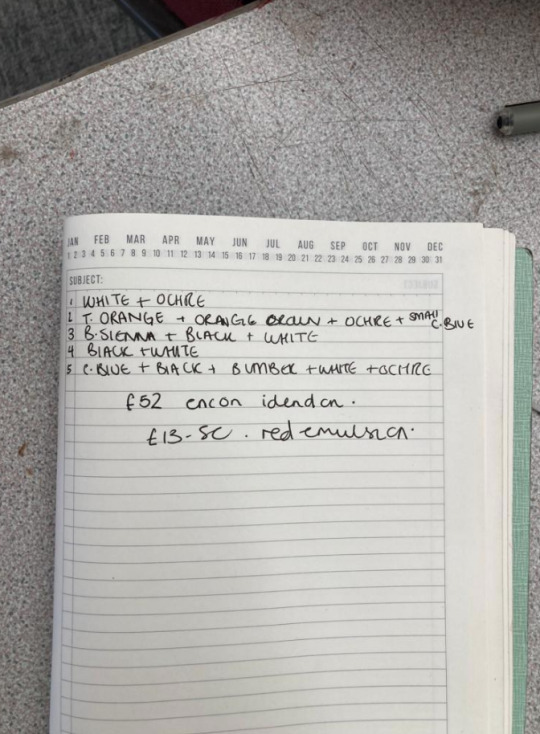 JAN FEB MAR APR MAY JUN JUL AUG SEP OCT NOV DEC
1 2 3 4 5 6 7 8 9 10 11 12 13 14 15 16 17 18 19 20 21 22 23 24 25 26 27 28 29 30 31
SUBJECT:
1 WHITE + OCHRE
2 T. ORANGE + ORANGE + OCHRE + SMALL C. BLUE
3 B. SIENNA + BLACK + WHITE
4 BLACK + WHITE
5 C. BLUE + BLACK + B UMBER + WHITE + OCHRE
£52
£13-50. red emulsion.